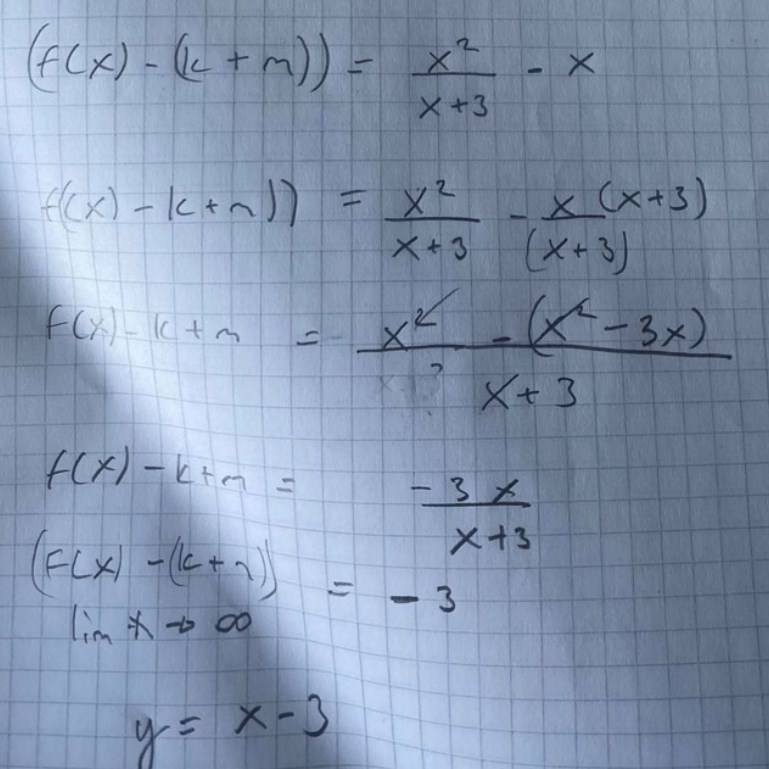 (f(x) - (k + m)) = x²/(x+3) - x
f(x) - k + m)) = x²/(x+3) - x(x+3)/(x+3)
f(x) - k + m = (x² - (x² - 3x))/(x+3)
f(x) - k + m = -3x/(x+3)
(f(x) - (k + m)) = -3
lim x → ∞
y = x - 3